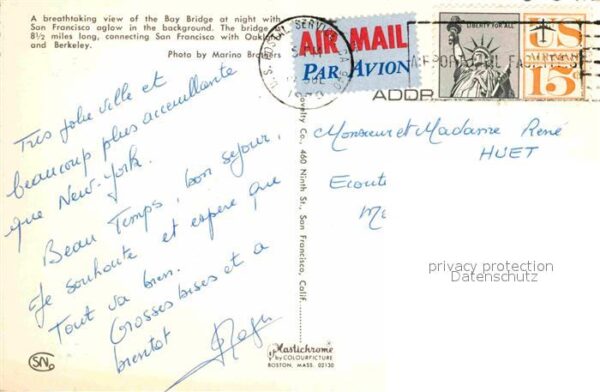 A breathtaking view of the Bay Bridge at night with
San Francisco aglow in the background. The bridge
8½ miles long, connecting San Francisco with Oakland
and Berkeley.
Photo by Marino Brothers
Très jolie ville et
beaucoup plus accueillante
que New-York.
Beau Temps, bon sejour,
Je souhaite et espère que
Tout va bien.
Grosses bises et a
bientot
Roger
SN
ovelty Co., 460 Ninth St., San Francisco, Calif.
Plastichrome
by COLOURPICTURE
BOSTON, MASS. 02130
U.S. POSTAL SERVICE
AIR MAIL
PAR AVION
ADDR
LIBERTY FOR ALL
US
15¢
Monsieur et Madame René
HUET
Ecout
privacy protection
Datenschutz